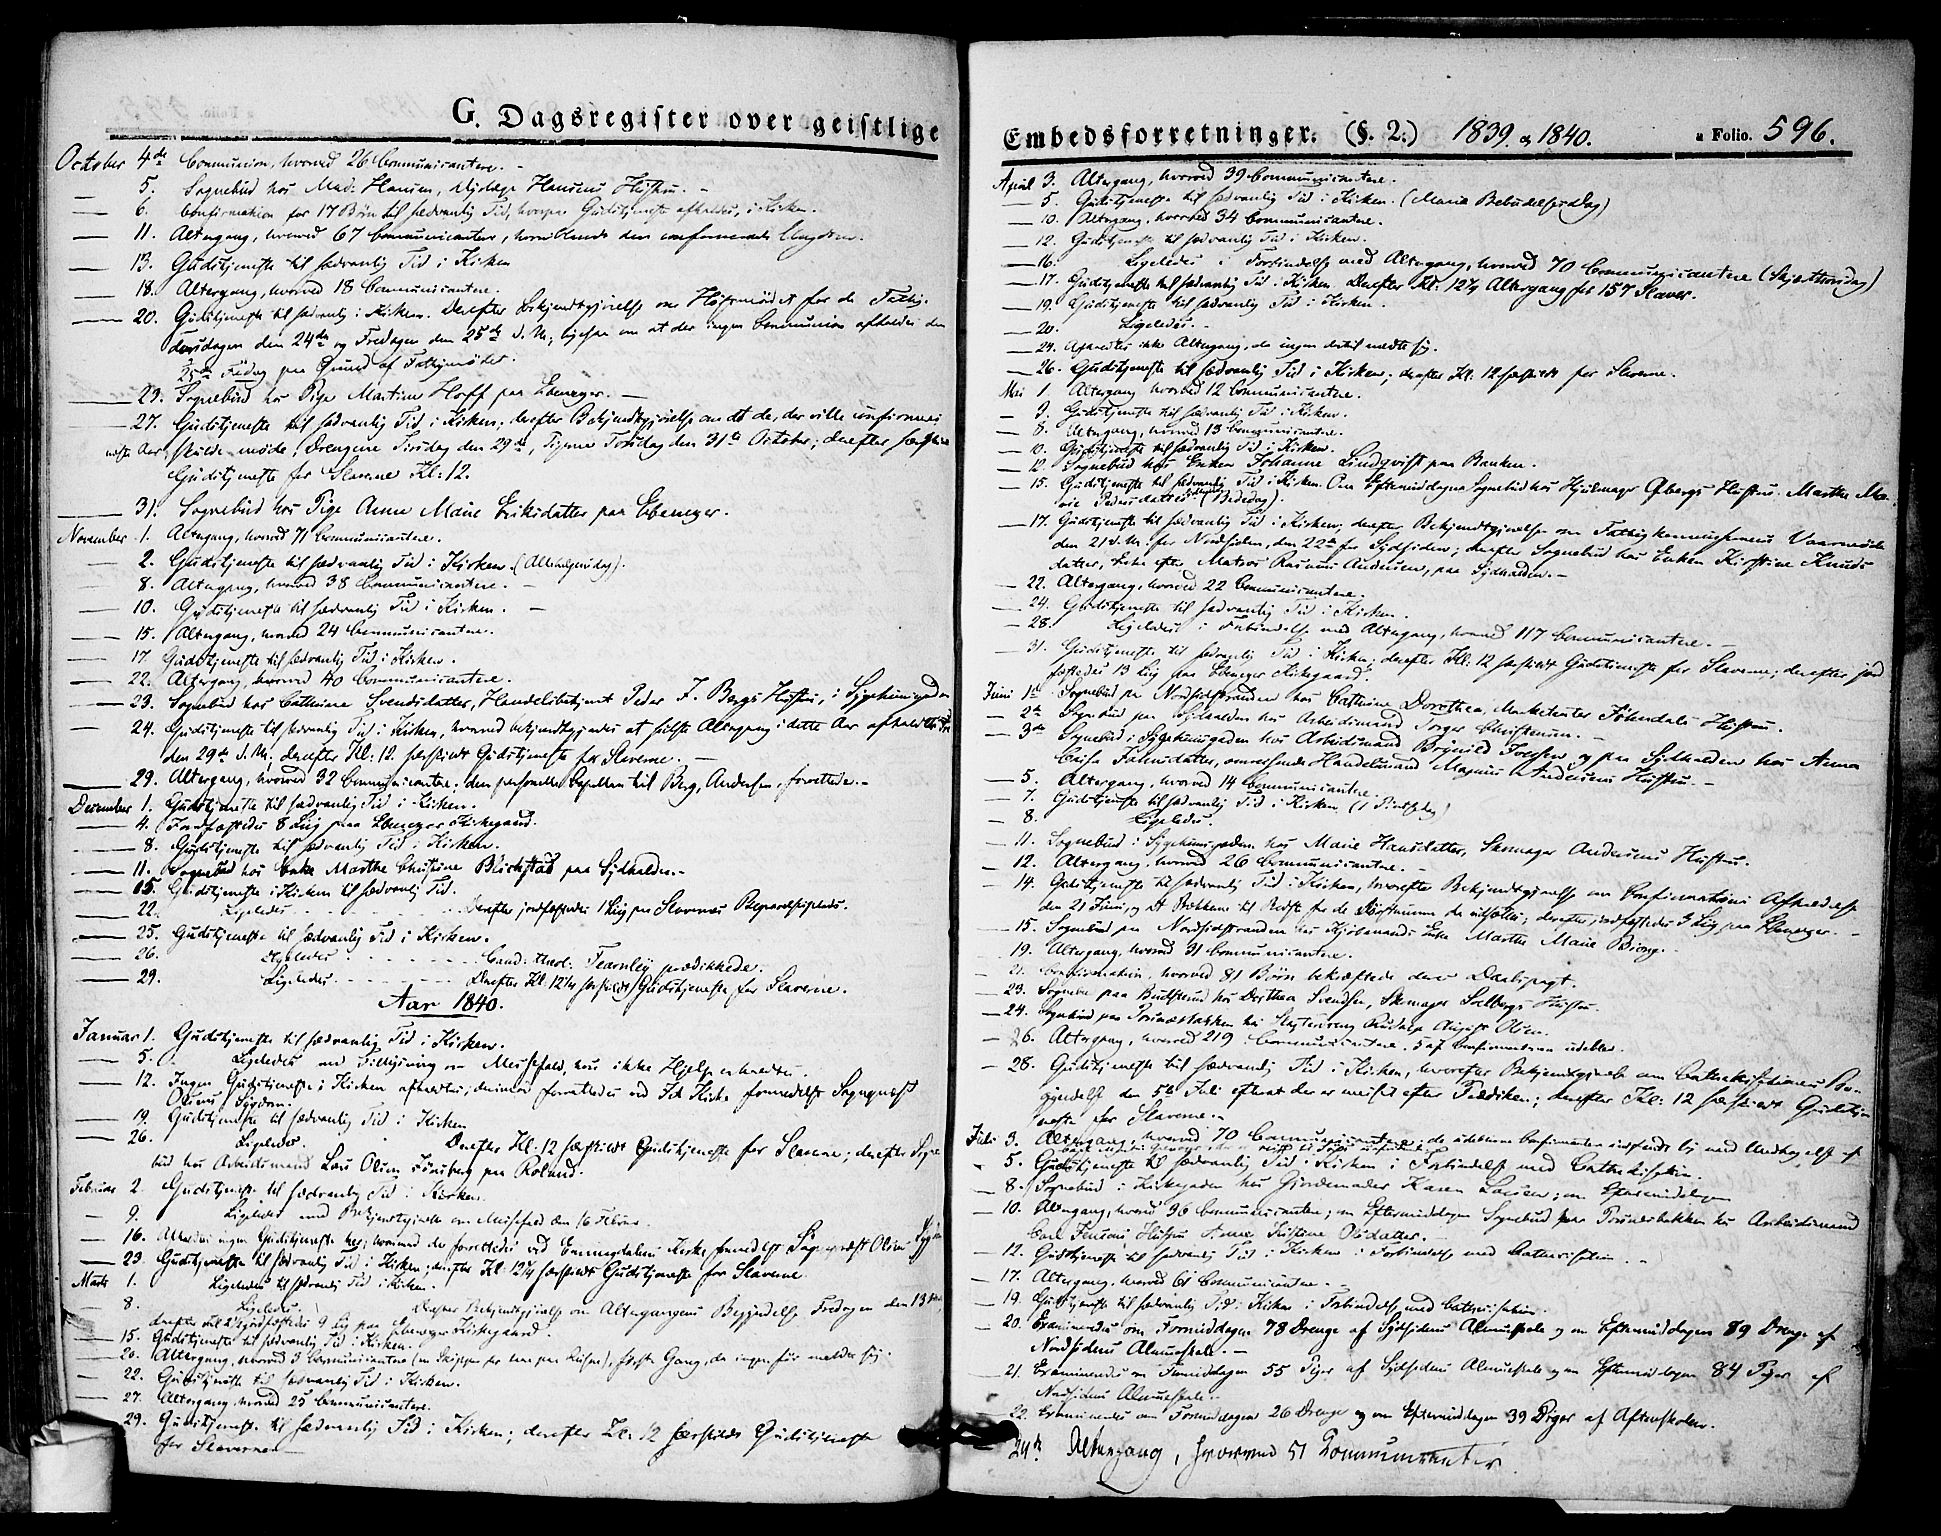 G. Dagsregister over geistlige
October 4de Communion, hvorved 26 Communicantere. -
5. Sognebud hos Mad: Hansen, Hansens Hustru. -
6. Confirmation for 17 Børn til sædvanlig Tid, hvorpaa Gudstjeneste afholdes, i Kirken.
11. Altergang, hvorved 67 Communicanter, hvoriblandt den confirmerede Ungdom.
13. Gudstjeneste til sædvanlig Tid i Kirken
18. Altergang, hvorved 18 Communicantere.
20. Gudstjeneste til sædvanlig i Kirken. Derefter Bekjendtgjørelse om Høstmødet for de Fattig.
Torsdagen den 24de og Fredagen den 25de d. M., ligesaa om at der ingen Communion afholdes den
25de Fredag paa Grund af Fattigmødet.
23. Sognebud hos Pige Martine Hoff paa Ebenezer. -
27. Gudstjeneste til sædvanlig Tid i Kirken; derefter Bekjendtgjørelse om at de, der ville confirmeres
næste Aar, skulde møde, Drengene Tirsdag den 29de, Pigerne Torsdag den 31te October; derefter særskilt
Gudstjeneste for Slaverne Kl: 12.
31. Sognebud hos Pige Anne Marie Eriksdatter paa Ebenezer.
November 1. Altergang, hvorved 71 Communicantere.
2. Gudstjeneste til sædvanlig Tid i Kirken (Allehelgensdag).
8. Altergang, hvorved 38 Communicantere. -
10. Gudstjeneste til sædvanlig Tid i Kirken. -
15. Altergang, hvorved 24 Communicantere.
17. Gudstjeneste til sædvanlig Tid i Kirken.
22. Altergang, hvorved 40 Communicantere.
23. Sognebud hos Cathrine Svendsdatter, Handelsbetjent Peder J. Bergs Hustru, i Sygehuusgaden
24. Gudstjeneste til sædvanlig Tid i Kirken, hvorved bekjendtgjordes at sidste Altergang i dette Aar afholdes
den 29de d. M., derefter Kl: 12 særskilt Gudstjeneste for Slaverne. -
29. Altergang, hvorved 32 Communicantere; den personelle Capellan til Berg, Andersen, forrettede. -
December 1. Gudstjeneste til sædvanlig Tid i Kirken.
4. Jordfæstedes 8 Liig paa Ebenezer Kirkegaard.
8. Gudstjeneste til sædvanlig Tid i Kirken.
11. Sognebud hos Enke Marthe Christine paa Sydhalden. -
15. Gudstjeneste i Kirken til sædvanlig Tid.
22. Ligeledes - - - Derefter jordfæstedes 1 Liig paa Slavernes Begravelsesplads.
25. Gudstjeneste til sædvanlig Tid i Kirken.
26. Ligeledes - - - Cand: theol: Fearnley prædikkede.
29. Ligeledes - - - Derefter Kl. 12¼ særskildt Gudstjeneste for Slaverne.
Aar 1840.
Januar 1. Gudstjeneste til sædvanlig Tid i Kirken.
5. Ligeledes med Tillysning om Messefald, hvis ikke Hjelp erholdtes.
12. Ingen Gudstjeneste i Kirken afholdtes; derimod forrettedes ved Kirke formedelst Sognepræst
Olsens Sygdom.
19. Gudstjeneste til sædvanlig Tid i Kirken
26. Ligeledes. Derefter Kl: 12 særskildt Gudstjeneste for Slaverne; derefter Sogne-
bud hos Arbeidsmand Lars Olsen paa Roland.
Februar 2. Gudstjeneste til sædvanlig Tid i Kirken.
9. Ligeledes med Bekjendtgjørelse om Messefald den 16 Februar.
16. ingen Gudstjeneste her; hvorimod der forrettedes ved Kirke formedelst Sognepræst Olsens Sygdom
23. Gudstjeneste til sædvanlig Tid i Kirken; derefter Kl: 12¼ særskildt Gudstjeneste for Slaverne.
Marts 1. Ligeledes til sædvanlig Tid i Kirken.
8. Ligeledes. Derefter Bekjendtgjørelse om Altergangens Begyndelse Fredagen den 13de,
derefter jordfæstedes 9 Liig paa Ebenezer Kirkegaard.
15. Gudstjeneste til sædvanlig Tid i Kirken.
20. Altergang, hvorved 3 Communicantere første Gang, da ingen før meldte sig.
22. Gudstjeneste til sædvanlig Tid i Kirken.
27. Altergang, hvorved 25 Communicantere.
29. Gudstjeneste til sædvanlig Tid i Kirken; derefter Kl: 12 særskildt Gudstjeneste
for Slaverne.
Embedsforretninger. (§. 2.) 1839. & 1840. a Folio. 596.
April 3. Altergang, hvorved 39 Communicantere.
5. Gudstjeneste til sædvanlig Tid i Kirken. (Mariæ Bebudelsesdag)
10. Altergang, hvorved 34 Communicantere.
12. Gudstjeneste til sædvanlig Tid i Kirken.
16. Ligeledes i Forbindelse med Altergang, hvorved 70 Communicantere (Skjærtorsdag)
17. Gudstjeneste til sædvanlig Tid i Kirken. Derefter Kl. 12¼ Altergang for 157 Slaver.
19. Gudstjeneste til sædvanlig Tid i Kirken.
20. Ligeledes. -
24. Afholdtes ikke Altergang, da ingen dertil meldte sig.
26. Gudstjeneste til sædvanlig Tid i Kirken; derefter Kl: 12 særskildt for Slaverne.
Mai 1. Altergang hvorved 12 Communicantere.
3. Gudstjeneste til sædvanlig Tid i Kirken.
8. Altergang, hvorved 13 Communicantere.
10. Gudstjeneste til sædvanlig Tid i Kirken.
12. Sognebud hos Enken Johanne Lindqvist paa Banken.
15. Gudstjeneste til sædvanlig Tid i Kirken. Om Eftermiddagen Sognebud hos Hjulmager Øbergs Hustru, Marthe Ma-
rie Pedersdatter (Bededag).
17. Gudstjeneste til sædvanlig Tid i Kirken, derefter Bekjendtgjørelse om Fattigkommissionens Vaarmøde
den 21 d. M. for Nordsiden, den 22de for Sydsiden; derefter Sognebud hos Enken Kirstine Knuds-
datter, Enke efter Matros Rasmus Andersen, paa Sydhalden. -
22. Altergang, hvorved 22 Communicantere.
24. Gudstjeneste til sædvanlig Tid i Kirken.
28. Ligeledes i Forbindelse med Altergang, hvorved 117 Communicantere.
31. Gudstjeneste til sædvanlig Tid i Kirken; derefter Kl: 12 særskildt Gudstjeneste for Slaverne; derefter jord-
fæstedes 13 Liig paa Ebenezer Kirkegaard.
Juni 1ste Sognebud paa Nordsidstranden hos Cathrine Dorothea, Marketenter Hustru.
2de Sognebud paa Sydhalden hos Arbeidsmand Torger Christensen. -
3die Sognebud i Sygehuusgaden hos Arbeidsmand Foersen og paa Sydhalden hos Anna
Caisa Johnsdatter, omreisende Handelsmand Magnus Andersens Hustru. -
5. Altergang, hvorved 14 Communicantere.
7. Gudstjeneste til sædvanlig Tid i Kirken (1 Pintsedag)
8. Ligeledes.
11. Sognebud i Sygehuusgaden hos Marie Hansdatter, Skomager Andersens Hustru.
12. Altergang, hvorved 26 Communicantere. -
14. Gudstjeneste til sædvanlig Tid i Kirken, hvorefter Bekjendtgjørelse om Confirmationens Afholdelse
den 21 Juni, og at til Bedste for de derefter jordfæstedes 3 Liig paa Ebenezer. -
15. Sognebud paa Nordsidstranden hos Kjøbmands Enke Marthe Marie Biørge. -
19. Altergang, hvorved 31 Communicantere.
21. Confirmation, hvorved 81 Børn bekræftede deres Daabspagt.
23. Sognebud paa hos Dorthea Svendsen, Skomager Solbergs Hustru.
24. Sognebud paa Tistedalsbakken hos August Olsen.
26. Altergang, hvorved 219 Communicantere. 5 af Confirmanderne udeblev.
28. Gudstjeneste til sædvanlig Tid i Kirken, hvorefter Bekjendtgjørelse om Cathekisationens Be-
gyndelse den 5te Juli efterat der er messet efter Prædiken; derefter Kl: 12 særskildt Gudstje-
neste for Slaverne. -
Juli 3. Altergang, hvorved 70 Communicantere; de udeblevne Confirmanter indfandt sig med Undtagelse af
5. Gudstjeneste til sædvanlig Tid i Kirken i Forbindelse med Cathekisation.
8. Sognebud i Kirkegaden hos Gjordemoder Karen Larsen; om Eftermiddagen
10. Altergang, hvorved 96 Communicantere; om Eftermiddagen Sognebud paa hos Arbeidsmand
Carl Jensens Hustru Anne Kirstine Olsdatter. -
12. Gudstjeneste til sædvanlig Tid i Kirken i Forbindelse med Cathekisation. -
17. Altergang, hvorved 61 Communicantere. -
19. Gudstjeneste til sædvanlig Tid i Kirken i Forbindelse med Cathekisation.
20. Examinertes om Formiddagen 78 Drenge af Sydsidens Almueskole og om Eftermiddagen 89 Drenge af
Nordsidens Almueskole. -
21. Examinertes om Formiddagen 55 Piger af Sydsidens Almueskole og om Eftermiddagen 84 Piger af
Nordsidens Almueskole. -
22. Examinertes om Formiddagen 26 Drenge og om Eftermiddagen 39 Piger af Aftenskolen.
24de Altergang, hvorved 51 Communicanter.